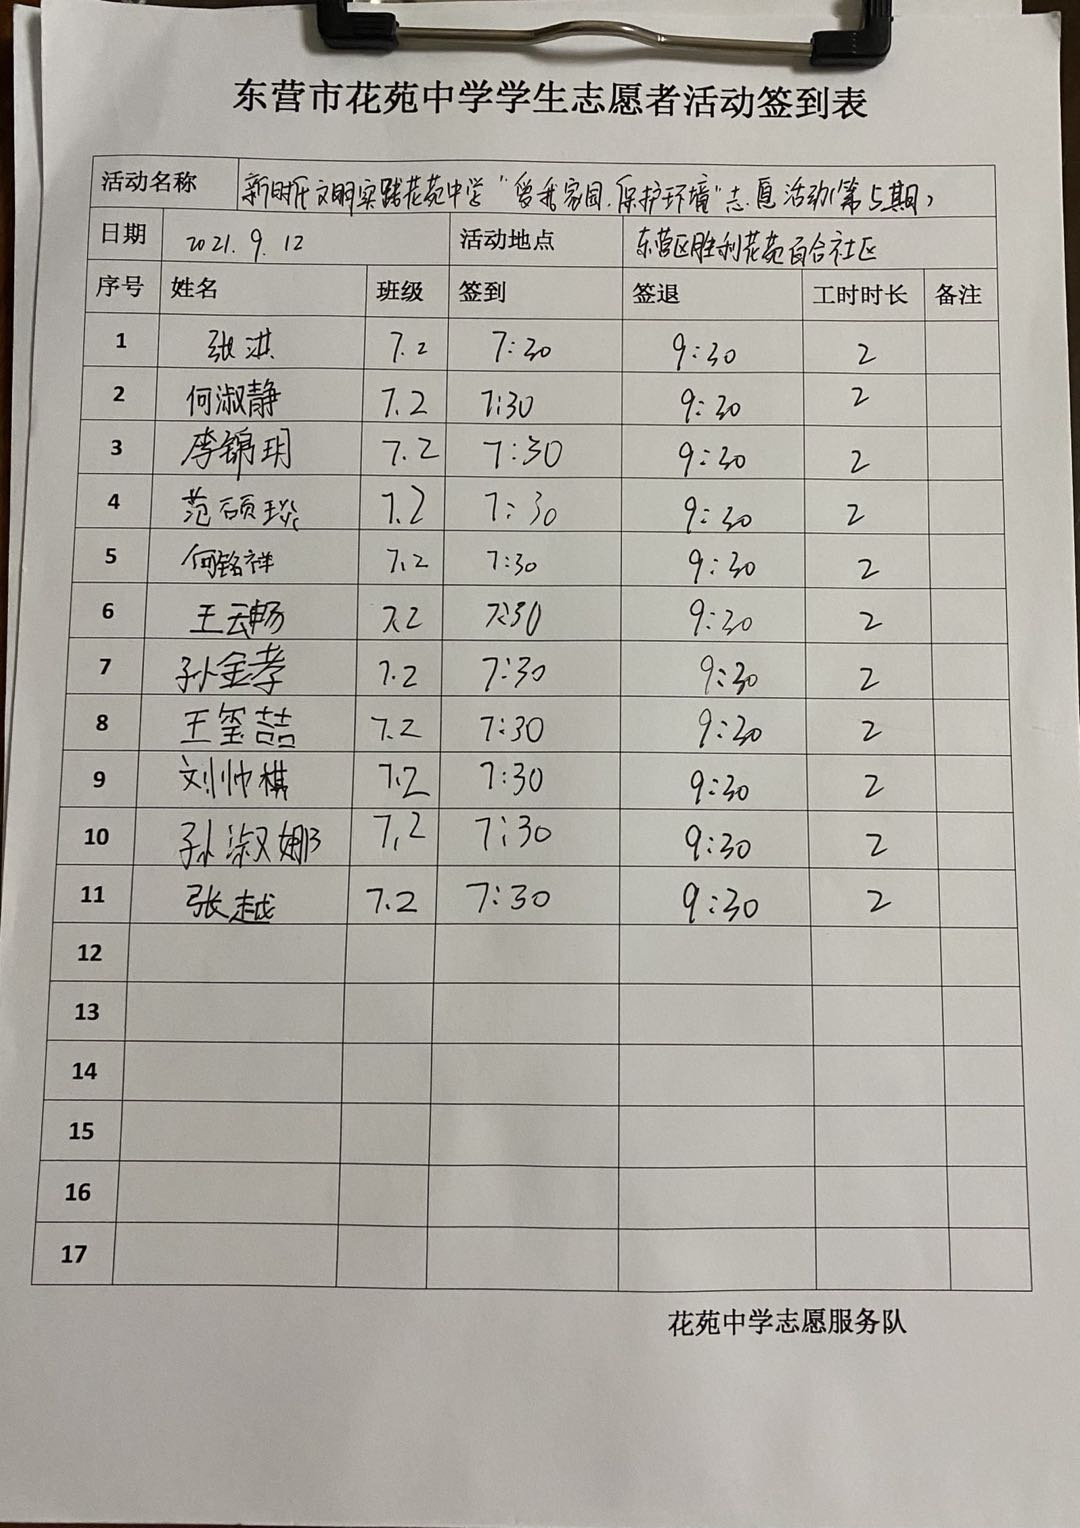 东营市花苑中学学生志愿者活动签到表
活动名称 新时代文明实践花苑中学“爱我家园,保护环境”志愿活动(第5期)
日期 2021.9.12 活动地点 东营区胜利花苑百合社区
序号 姓名 班级 签到 签退 工时时长 备注
1 张淇 7.2 7:30 9:30 2
2 何淑静 7.2 7:30 9:30 2
3 李锦玥 7.2 7:30 9:30 2
4 范硕琰 7.2 7:30 9:30 2
5 何铭祥 7.2 7:30 9:30 2
6 王云畅 7.2 7:30 9:30 2
7 孙金孝 7.2 7:30 9:30 2
8 王玺喆 7.2 7:30 9:30 2
9 刘帅棋 7.2 7:30 9:30 2
10 孙淑娜 7.2 7:30 9:30 2
11 张越 7.2 7:30 9:30 2
12
13
14
15
16
17
花苑中学志愿服务队